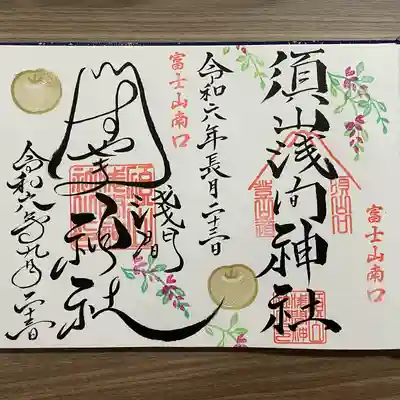 富士山南口
須山浅间神社
令和六年長月二十三日
富士山南口
すやま
浅间
神社
令和六年九月二十三日